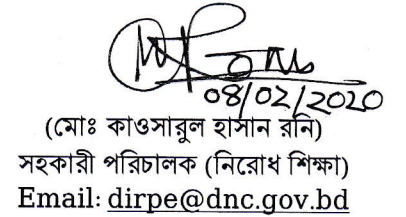 08/02/2020
(মোঃ কাওসারুল হাসান রনি)
সহকারী পরিচালক (নিরোধ শিক্ষা)
Email: dirpe@dnc.gov.bd